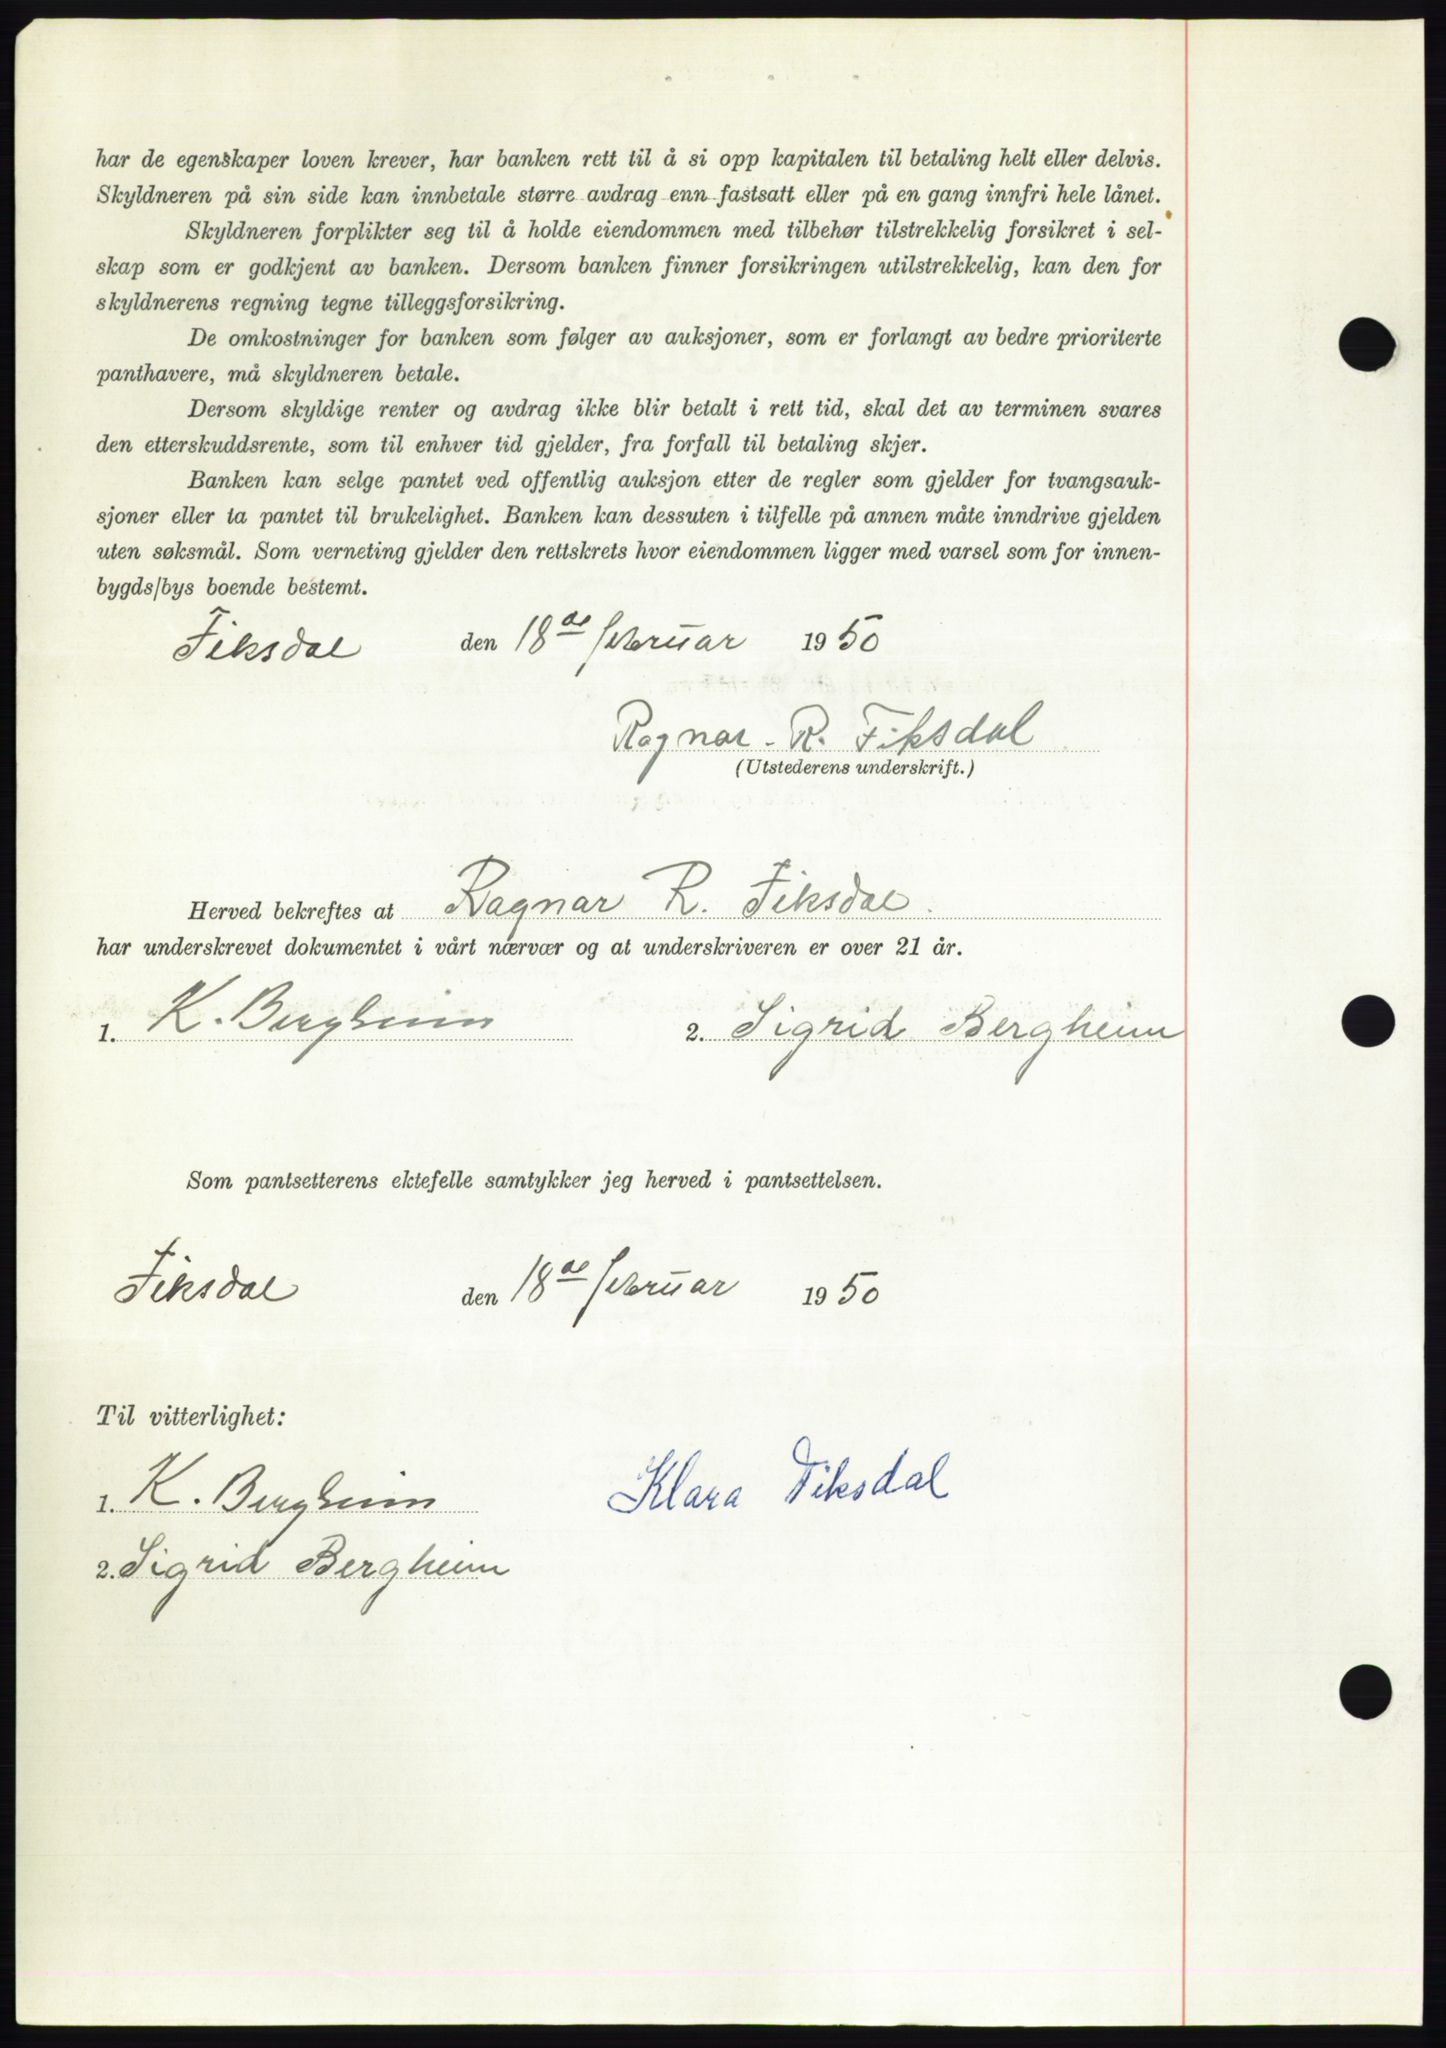 har de egenskaper loven krever, har banken rett til å si opp kapitalen til betaling helt eller delvis.
Skyldneren på sin side kan innbetale større avdrag enn fastsatt eller på en gang innfri hele lånet.
Skyldneren forplikter seg til å holde eiendommen med tilbehør tilstrekkelig forsikret i sel-
skap som er godkjent av banken. Dersom banken finner forsikringen utilstrekkelig, kan den for
skyldnerens regning tegne tilleggsforsikring.
De omkostninger for banken som følger av auksjoner, som er forlangt av bedre prioriterte
panthavere, må skyldneren betale.
Dersom skyldige renter og avdrag ikke blir betalt i rett tid, skal det av terminen svares
den etterskuddsrente, som til enhver tid gjelder, fra forfall til betaling skjer.
Banken kan selge pantet ved offentlig auksjon etter de regler som gjelder for tvangsauk-
sjoner eller ta pantet til brukelighet. Banken kan dessuten i tilfelle på annen måte inndrive gjelden
uten søksmål. Som verneting gjelder den rettskrets hvor eiendommen ligger med varsel som for innen-
bygds/bys boende bestemt.
Fiksdal den 18de februar 1950
Ragnar R. Fiksdal
(Utstederens underskrift.)
Herved bekreftes at Ragnar R. Fiksdal.
har underskrevet dokumentet i vårt nærvær og at underskriveren er over 21 år.
1. K. Bergheim 2. Sigrid Bergheim
Som pantsetterens ektefelle samtykker jeg herved i pantsettelsen.
Fiksdal den 18de februar 1950
Til vitterlighet:
1. K. Bergheim Klara Fiksdal
2. Sigrid Bergheim